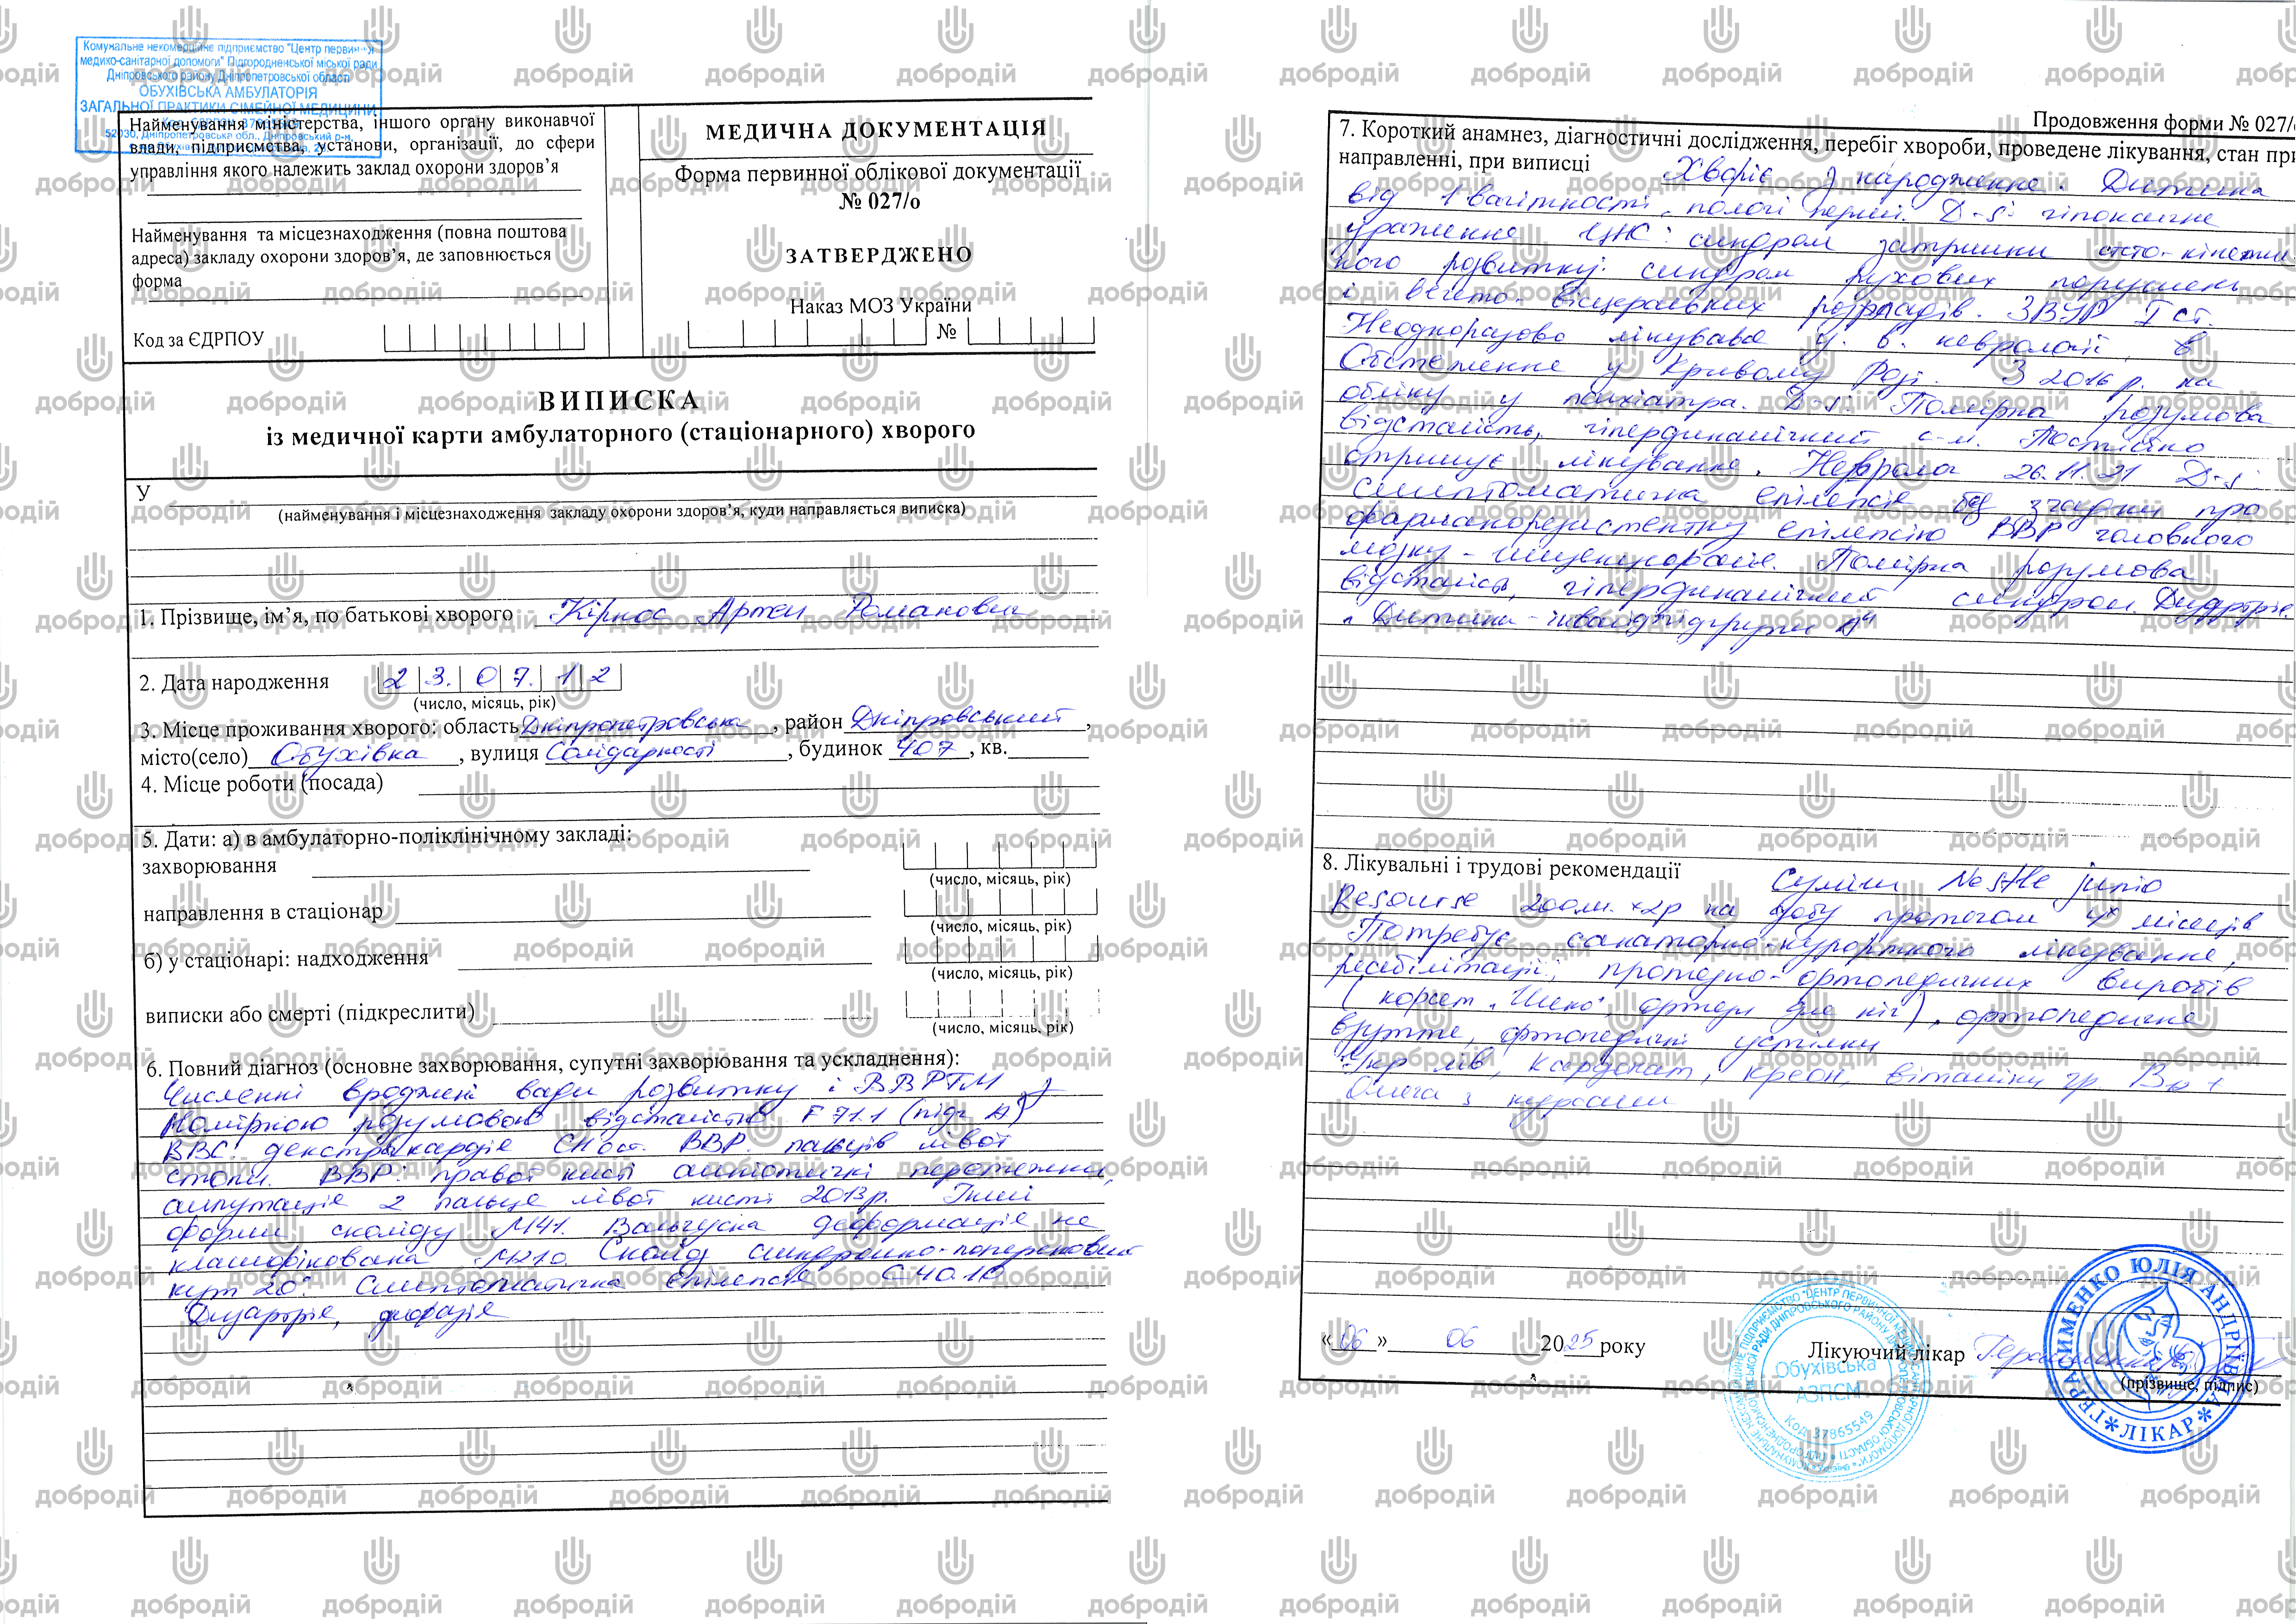 Комунальне некомерційне підприємство "Центр первинної
медико-санітарної допомоги" Підгородненської міської ради
Дніпровського району Дніпропетровської області
ОБУХІВСЬКА АМБУЛАТОРІЯ
ЗАГАЛЬНОЇ ПРАКТИКИ СІМЕЙНОЇ МЕДИЦИНИ
52030, Дніпропетровська обл., Дніпровський р-н,
Найменування міністерства, іншого органу виконавчої
влади, підприємства, установи, організації, до сфери
управління якого належить заклад охорони здоров’я
Найменування та місцезнаходження (повна поштова
адреса) закладу охорони здоров’я, де заповнюється
форма
Код за ЄДРПОУ
МЕДИЧНА ДОКУМЕНТАЦІЯ
Форма первинної облікової документації
№ 027/о
ЗАТВЕРДЖЕНО
Наказ МОЗ України
№
ВИПИСКА
із медичної карти амбулаторного (стаціонарного) хворого
У
(найменування і місцезнаходження закладу охорони здоров’я, куди направляється виписка)
1. Прізвище, ім’я, по батькові хворого Кірнос Артем Романович
2. Дата народження 23.07.12
(число, місяць, рік)
3. Місце проживання хворого: область Дніпропетровська, район Дніпровський,
місто(село) Обухівка, вулиця Солідарності, будинок 407, кв.
4. Місце роботи (посада)
5. Дати: а) в амбулаторно-поліклінічному закладі:
захворювання
(число, місяць, рік)
направлення в стаціонар
(число, місяць, рік)
б) у стаціонарі: надходження
(число, місяць, рік)
виписки або смерті (підкреслити)
(число, місяць, рік)
6. Повний діагноз (основне захворювання, супутні захворювання та ускладнення):
Численні вроджені вади розвитку і ВВРГМ з
помірною розумовою відсталістю F 71.1 (підг А)
ВВС: декстракардіє СН 0ст. ВВР. пальців лівої
стопи. ВВР: правої кисті амніотичні перетяжки,
ампутаціє 2 пальце лівої кисті 2013р. Інші
форми сколіозу М41. Вальгусна деформаціє не
класифікована М21.0 Сколіоз
кут 20° Симптоматична епілепсіє G40.
Дизартріє,
Продовження форми № 027/о
7. Короткий анамнез, діагностичні дослідження, перебіг хвороби, проведене лікування, стан при
направленні, при виписці Хворіє з народженне. Дитина
від 1 вагітності, пологі перші. D-s: гіпоксичне
ураженне ЦНС: синдром затримки стато-кінетич-
ного розвитку: синдром рухових порушень
і вегето-вісцеральних розладів. ЗВУР I ст.
Неодноразово лікувавсе у в. неврології, в
Обстеженне у Кривому Розі. З 2016 р. на
обліку у психіатра. D-s: Помірна розумова
відсталість, гіпердинамічний с-м. Постійно
отримує лікуванне. Невролог 26.11.21 D-s:
симптоматична епілепсіє без згадки про
фармакорезистентну епілепсію ВВР головного
мозку - шизенцефаліє. Помірна розумова
відсталість, гіпердинамічний синдром. Дизартріє.
Дитина-інвалід підгрупи А"
8. Лікувальні і трудові рекомендації Суміш Nestle junio
Resourse 200мл. х2р на добу протягом 4х місяців
Потребує санаторно-курортного лікуванне,
реабілітації, протезно-ортопедичних виробів
(корсет „Шено", ортези для ніг), ортопедичне
взуттє, ортопедичні устілки
Укр лів, Кардонат, креон, вітаміни гр. В
Омега 3 курсами
«06» 06 2025 року
Лікуючий лікар
(прізвище, підпис)
Обухівська
АЗПСМ
Код 37865549
ГЕРАСИМЕНКО ЮЛІЯ АНДРІЇВНА
*ЛІКАР*
добродій